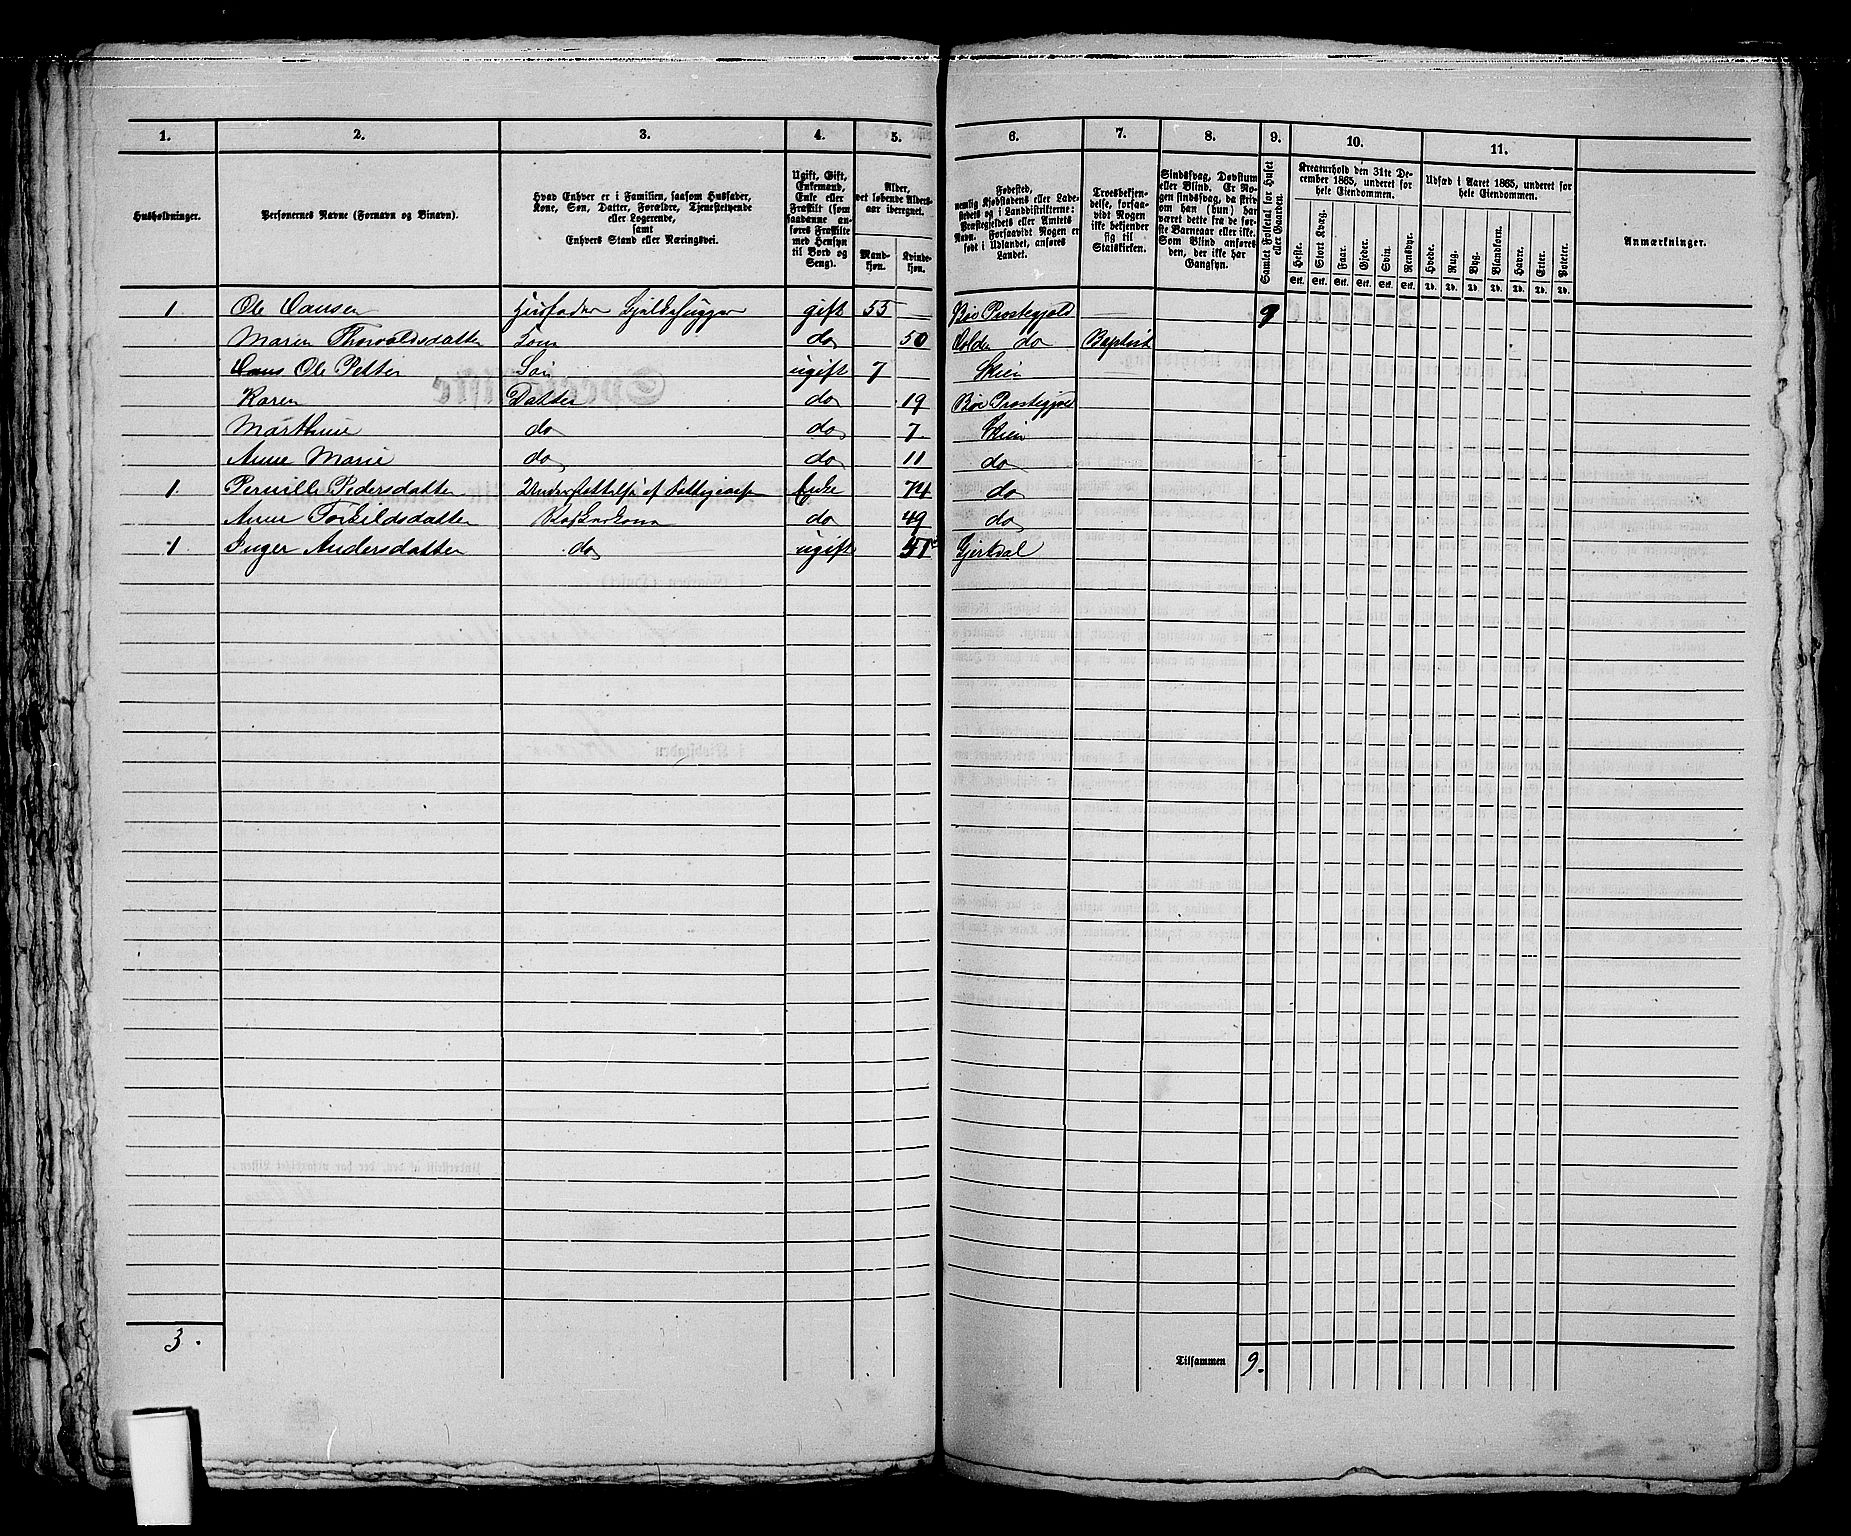 1. 2. 3. 4. 5. 6. 7. 8. 9. 10. 11.
Husholdninger.
Personernes Navne (Fornavn og Binavn).
Hvad Enhver er i Familien, saasom Husfader,
Kone, Søn, Datter, Forældre, Tjenestetyende
eller Logerende,
samt
Enhvers Stand eller Næringsvei.
Ugift, Gift,
Enkemand,
Enke eller
Fraskilt (som
saadanne an-
føres Fraskilte
med Hensyn
til Bord og
Seng).
Alder,
det løbende Alders-
aar iberegnet.
Mand-
kjøn.
Kvinde-
kjøn.
Fødested,
nemlig Kjøbstadens eller Lade-
stedets og i Landdistrikterne:
Præstegjeldets eller Amtets
Navn. Forsaavidt Nogen er
født i Udlandet, anføres
Landet.
Troesbekjen-
delse, forsaa-
vidt Nogen
ikke bekjender
sig til
Statskirken.
Sindssvag, Døvstum
eller Blind. Er No-
gen sindssvag, da skrives
om han (hun) har
været dette fra de før-
ste Barneaar eller ikke.
Som Blind anføres
den, der ikke har
Gangsyn.
Samlet Folketal for Huset
eller Gaarden.
Kreaturhold den 31te De-
cember 1865, underet for
hele Eiendommen.
Heste.
Stort Kvæg.
Faar.
Gjeder.
Svin.
Rensdyr.
Stk. Stk. Stk. Stk. Stk. Stk.
Udsæd i Aaret 1865, underet for
hele Eiendommen.
Hvede.
Rug.
Byg.
Blandkorn.
Havre.
Erter.
Poteter.
Td. Td. Td. Td. Td. Td. Td.
Anmærkninger.
1 Ole Hansen Husfader gift 55 Bøe Præstegjeld 9
Maren Thorvaldsdatter do 50 Holden do Baptist
Hans Ole Petter Søn ugift 7 Skien
Karen Datter do 19 Bøe Præstegjeld
Marthine do do 7 Skien
Anne Marie do do 11 do
1 Pernille Pedersdatter Understøttelse af Enke 74 do
Anne Torkildsdatter do 49 do
1 Inger Andersdatter do ugift 51 Gjerdal
3. Tilsammen 9.